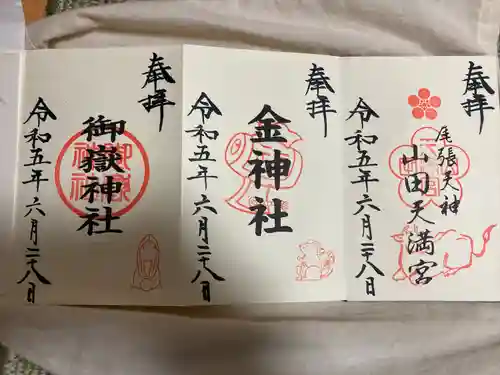 奉拝
尾張天神
山田天満宮
令和五年六月二十八日
奉拝
金神社
令和五年六月二十八日
奉拝
御嶽神社
令和五年六月二十八日